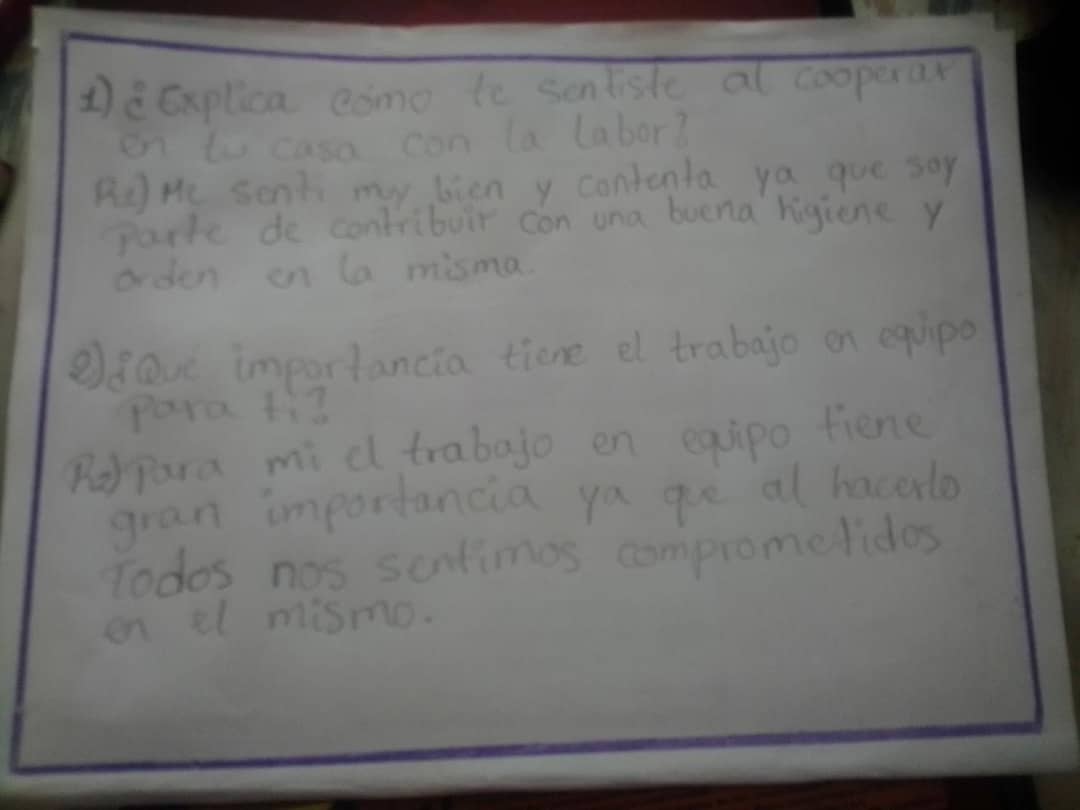 1) ¿Explica cómo te sentiste al cooperar
en tu casa con la labor?
R1) Me senti muy bien y contenta ya que soy
parte de contribuir con una buena higiene y
orden en la misma.
2) ¿Que importancia tiene el trabajo en equipo
para ti?
R2) Para mi el trabajo en equipo tiene
gran importancia ya que al hacerlo
Todos nos sentimos comprometidos
en el mismo.